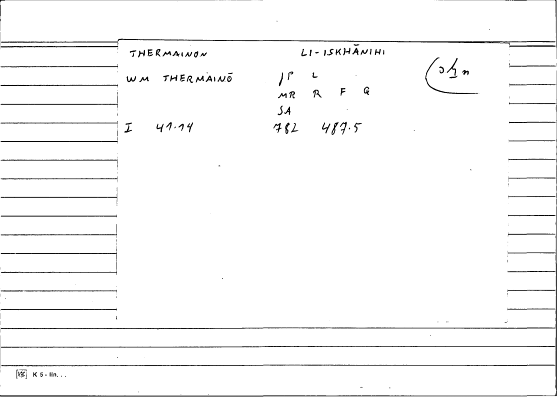 THERMAINON LI-ISKHĀNIHI
WM THERMAINŌ JP L
MR R F G
SA
I 41.14 782 487.5
K 5 - lin. . .